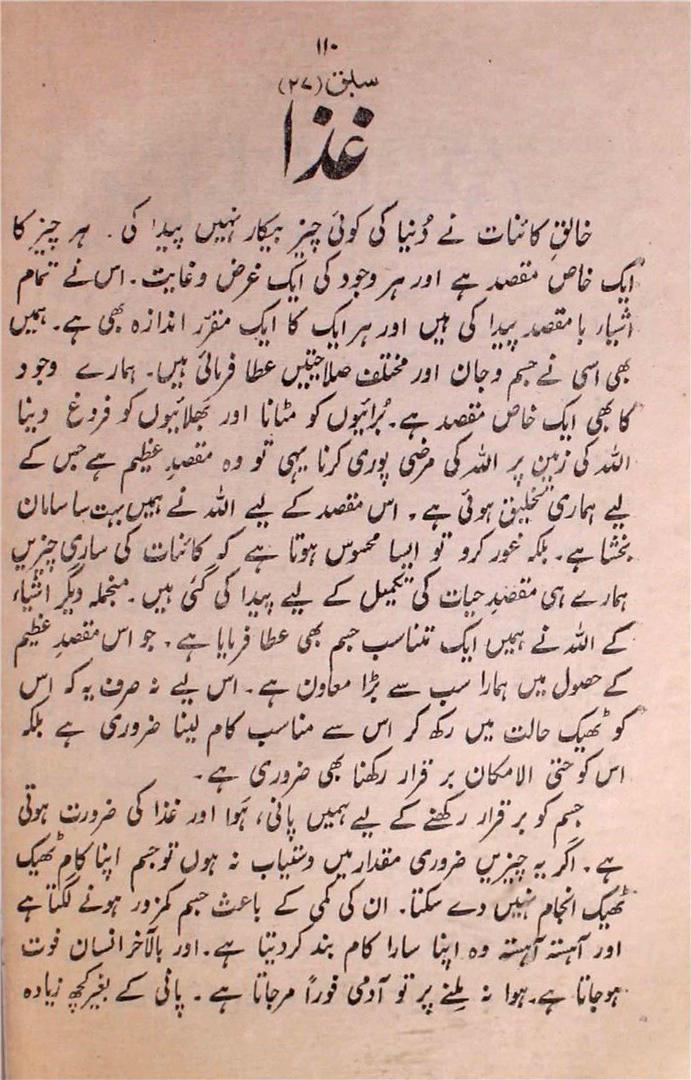 ۱۱۰
سبق (۲۷)
غذا
خالقِ کائنات نے دُنیا کی کوئی چیز بیکار نہیں پیدا کی۔ ہر چیز کا
ایک خاص مقصد ہے اور ہر وجود کی ایک غرض وغایت۔ اس نے تمام
اشیار بامقصد پیدا کی ہیں اور ہر ایک کا ایک مقرّر اندازہ بھی ہے۔ ہمیں
بھی اسی نے جسم وجان اور مختلف صلاحیتیں عطا فرمائی ہیں۔ ہمارے وجود
کا بھی ایک خاص مقصد ہے۔ بُرائیوں کو مٹانا اور بھلائیوں کو فروغ دینا
اللہ کی زمین پر اللہ کی مرضی پوری کرنا یہی تو وہ مقصدِ عظیم ہے جس کے
لیے ہماری تخلیق ہوئی ہے۔ اس مقصد کے لیے اللہ نے ہمیں بہت سا سامان
بخشا ہے۔ بلکہ غور کرو تو ایسا محسوس ہوتا ہے کہ کائنات کی ساری چیزیں
ہمارے ہی مقصدِ حیات کی تکمیل کے لیے پیدا کی گئی ہیں۔ منجملہ دیگر اشیاء
کے اللہ نے ہمیں ایک متناسب جسم بھی عطا فرمایا ہے۔ جو اس مقصدِ عظیم
کے حصول میں ہمارا سب سے بڑا معاون ہے۔ اس لیے نہ صرف یہ کہ اس
کو ٹھیک حالت میں رکھ کر اس سے مناسب کام لینا ضروری ہے بلکہ
اس کو حتیٰ الامکان برقرار رکھنا بھی ضروری ہے۔
جسم کو برقرار رکھنے کے لیے ہمیں پانی، ہَوا اور غذا کی ضرورت ہوتی
ہے۔ اگر یہ چیزیں ضروری مقدار میں دستیاب نہ ہوں تو جسم اپنا کام ٹھیک
ٹھیک انجام نہیں دے سکتا۔ ان کی کمی کے باعث جسم کمزور ہونے لگتا ہے
اور آہستہ آہستہ وہ اپنا سارا کام بند کر دیتا ہے۔ اور بالآخر انسان فوت
ہوجاتا ہے۔ ہوا نہ ملنے پر تو آدمی فوراً مرجاتا ہے۔ پانی کے بغیر کچھ زیادہ